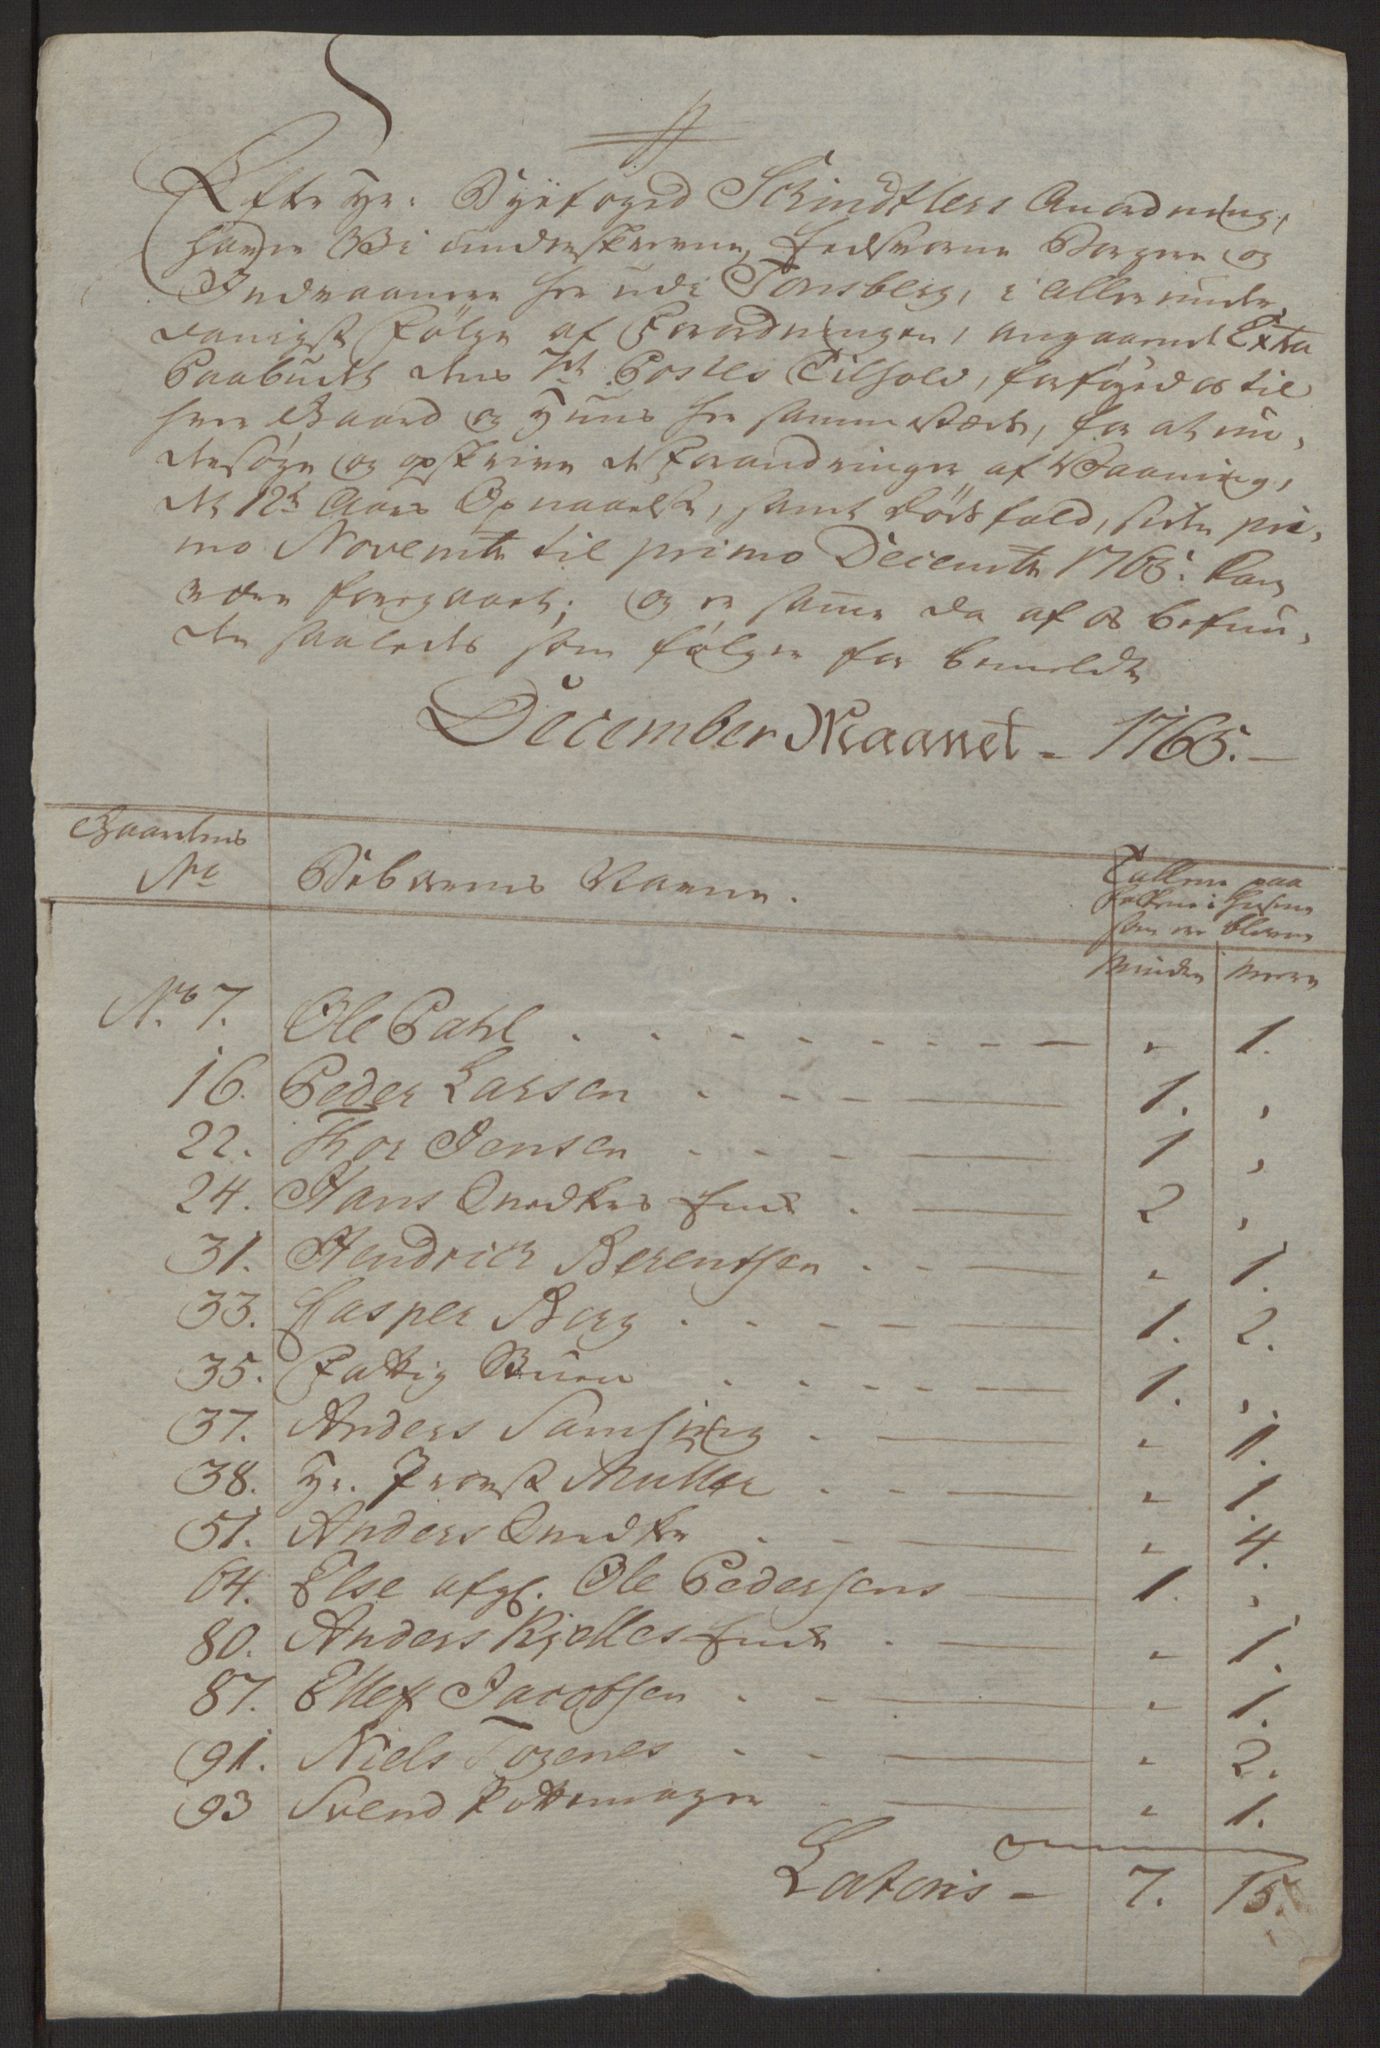 Efter Hr. Byefoged Schindtlers Anordning,
haver Vi underskrevne, Eedsvorne Borgere og
Indvaanere her udi Tonsberg, i allerunder,
danigst Følge af Forordningen, angaaende Extra
Paabudts dens 7de Postes Tilhold, forføyed os til
hver Gaard og Huus her sammestæds, for at un,
dersøge og opskrive de Forandringer af Vaaning,
de 12te Aars Opnaaelse, samt dødsfald, siden pri,
mo Novembr til primo Decembr 1765. kand
være foregaaet; og er same da af os befun,
den saaledes som følger for bemeldte
December Maanet - 1765. -
Gaardens
No Beboernes Navne. Tallene paa
Folkene i Husene
som ere blevne
Minder Meere
No. 7. Ole Pahl . . . . „ 1.
16. Peder Larsen . . . 1. „
22. Thor Jensen . . . 1 „
24. Hans Snedkers Enke . 2 „
31. Hendrich Berentsen . . „ 1.
33. Casper Berg . . . 1. 2.
35. Fattig Huuse . . . 1. „
37. Anders Samsing . „ 1.
38. Hr. Provst Muller . . „ 1.
51. Anders Snedker . . „ 4.
64. Else afgl. Ole Pedersens 1. „
80. Anders Kjelles Enke . „ 1.
87. Ellef Jacobsen . . „ 1.
91. Niels Togenes . . „ 2.
93 Svend Pottemager . „ 1.
Lateris - 7. 15.